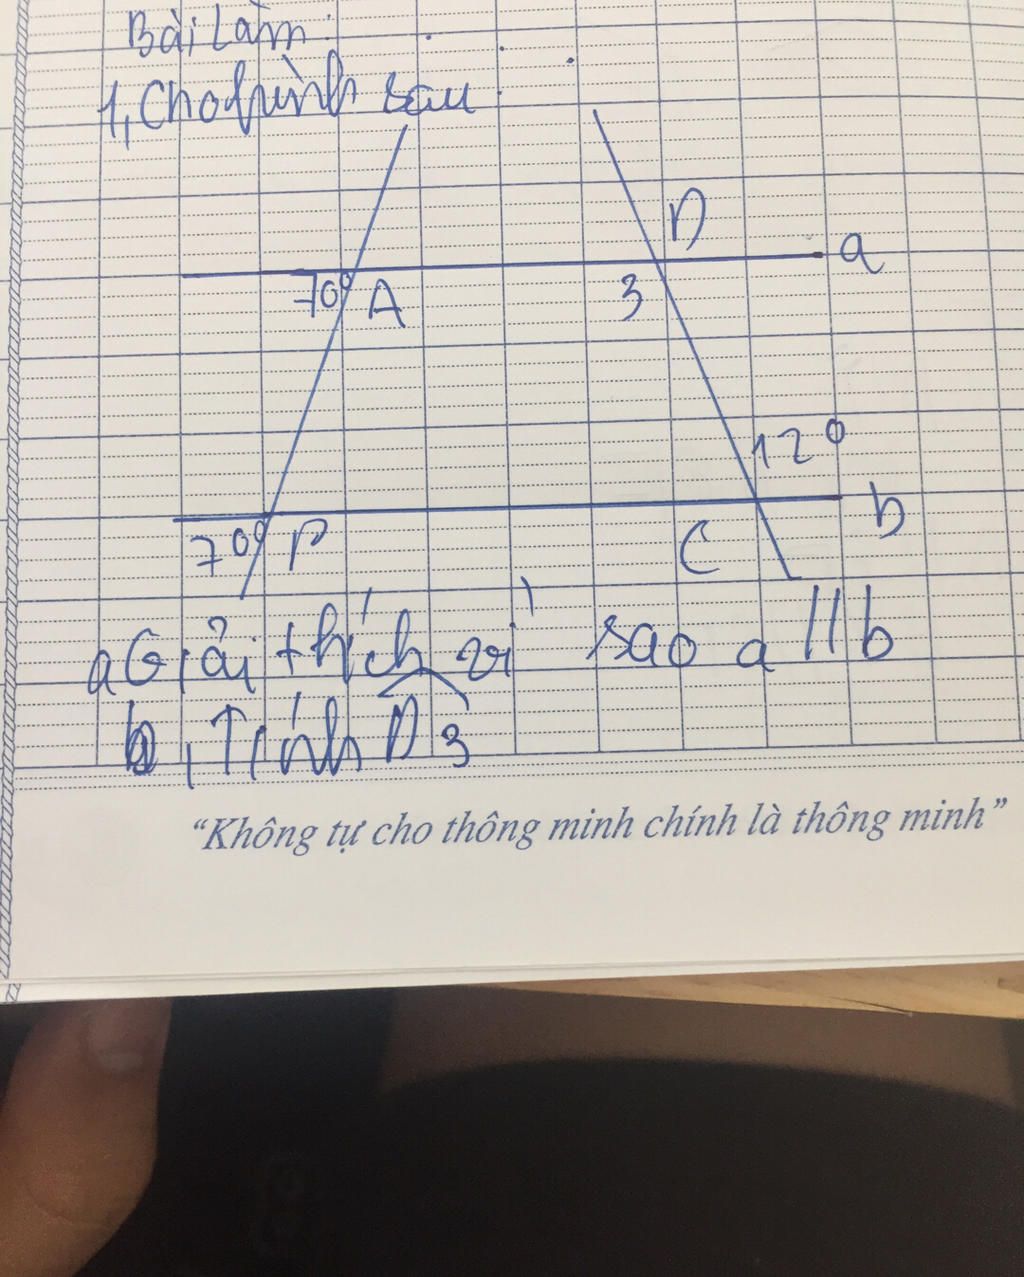 Bài Làm:
1, Cho hình sau:
D
a
70° A
3
12°
b
70° P
C
a Giải thích vì sao a // b
b, Tính D̂3
“Không tự cho thông minh chính là thông minh”